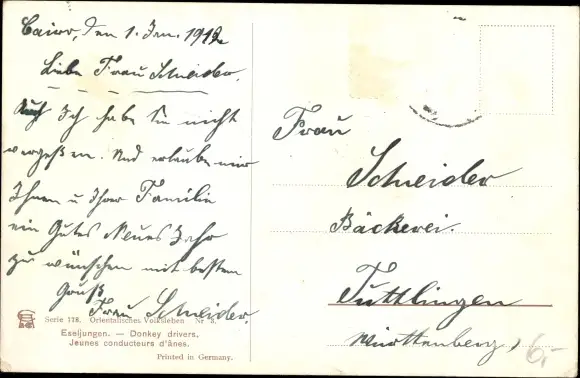 Cairo, den 1. Jan. 1912
Liebe Frau Schneider.
Auch Ich habe Sie nicht
vergeßen. Und erlaube mir
Ihnen u Ihrer Familie
ein Gutes Neues Jahr
zu wünschen mit bestem
Gruß
Frau Schneider.
Serie 178. Orientalisches Volksleben Nr 5.
Eseljungen. — Donkey drivers.
Jeunes conducteurs d'ânes.
Printed in Germany.
Frau
Schneider
Bäckerei.
Tuttlingen
Württenberg,
6,-